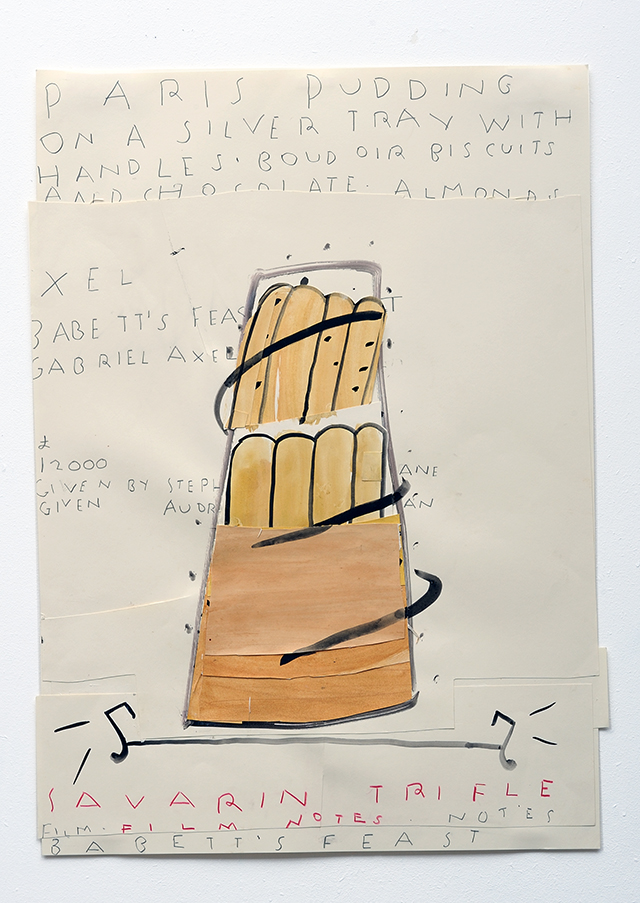 PARIS PUDDING
ON A SILVER TRAY WITH
HANDLES. BOUDOIR BISCUITS
AND CHOCOLATE. ALMONDS
AXEL
BABETT'S FEAST
GABRIEL AXEL
£
12000
GIVEN BY STEPH ANE
GIVEN AUDR AN
SAVARIN TRIFLE
FILM. FILM NOTES. NOTES
BABETT'S FEAST